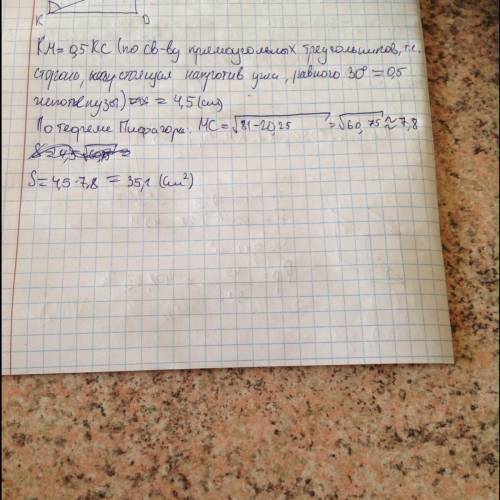 K D
KM = 0,5 KC (по св-ву прямоугольных треугольников, т.е.
сторона, стоящая напротив угла, равного 30° = 0,5
гипотенузы) = 4,5 (см)
По теореме Пифагора: MC = √81-20,25 = √60,75 ≈ 7,8
S = 4,5 · 7,8 = 35,1 (см²)